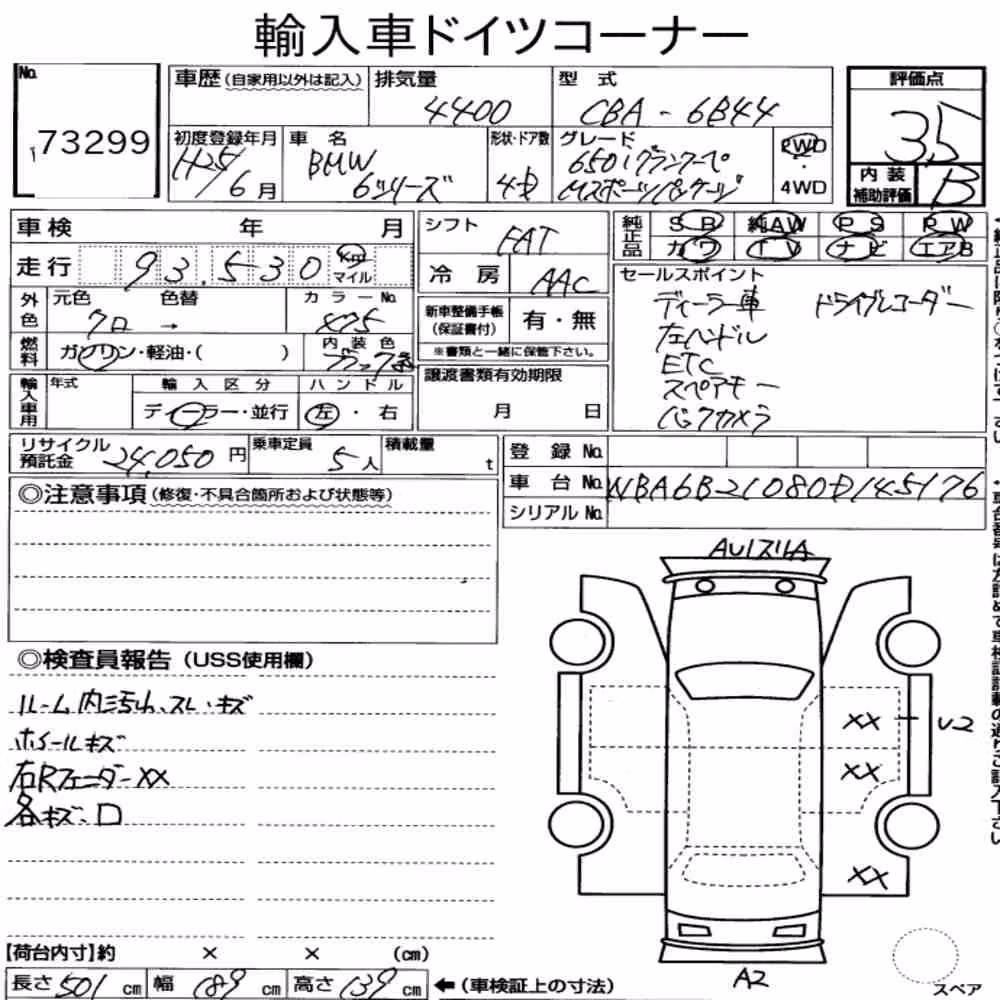 輸入車ドイツコーナー
No.
73299
車歴(自家用以外は記入)
排気量
4400
型 式
CBA-6B44
評価点
3.5
初度登録年月
H25/6月
車 名
BMW
6シリーズ
形状・ドア数
4D
グレード
650iグランクーペ
Mスポーツパッケージ
2WD
・
4WD
内装
補助評価
B
車検 年 月
走行 93,530 Km マイル
シフト
FAT
冷 房 AAC
純正品
SR 純AW PS PW
カワ TV ナビ エアB
セールスポイント
ディーラー車 ドライブレコーダー
左ハンドル
ETC
スペアキー
バックカメラ
外色
元色 色替
クロ →
カラーNo.
475
新車整備手帳
(保証書付)
有・無
※書類と一緒に保管下さい。
燃料
ガソリン・軽油・( )
内装色
譲渡書類有効期限
月 日
輸入車用
年式
輸入区分
ディーラー・並行
ハンドル
左・右
リサイクル
預託金
24,050円
乗車定員
5人
積載量
t
登 録 No.
車 台 No. WBA6B21080D145176
シリアル No.
◎注意事項(修復・不具合箇所および状態等)
◎検査員報告(USS使用欄)
ルーム内汚れ、スレ・キズ
ホイールキズ
右Rフェンダー XX
各キズ、ロ
XX
U2
XX
XX
A2
スペア
【荷台内寸】約 × × (cm)
長さ501cm 幅189cm 高さ139cm ←(車検証上の寸法)